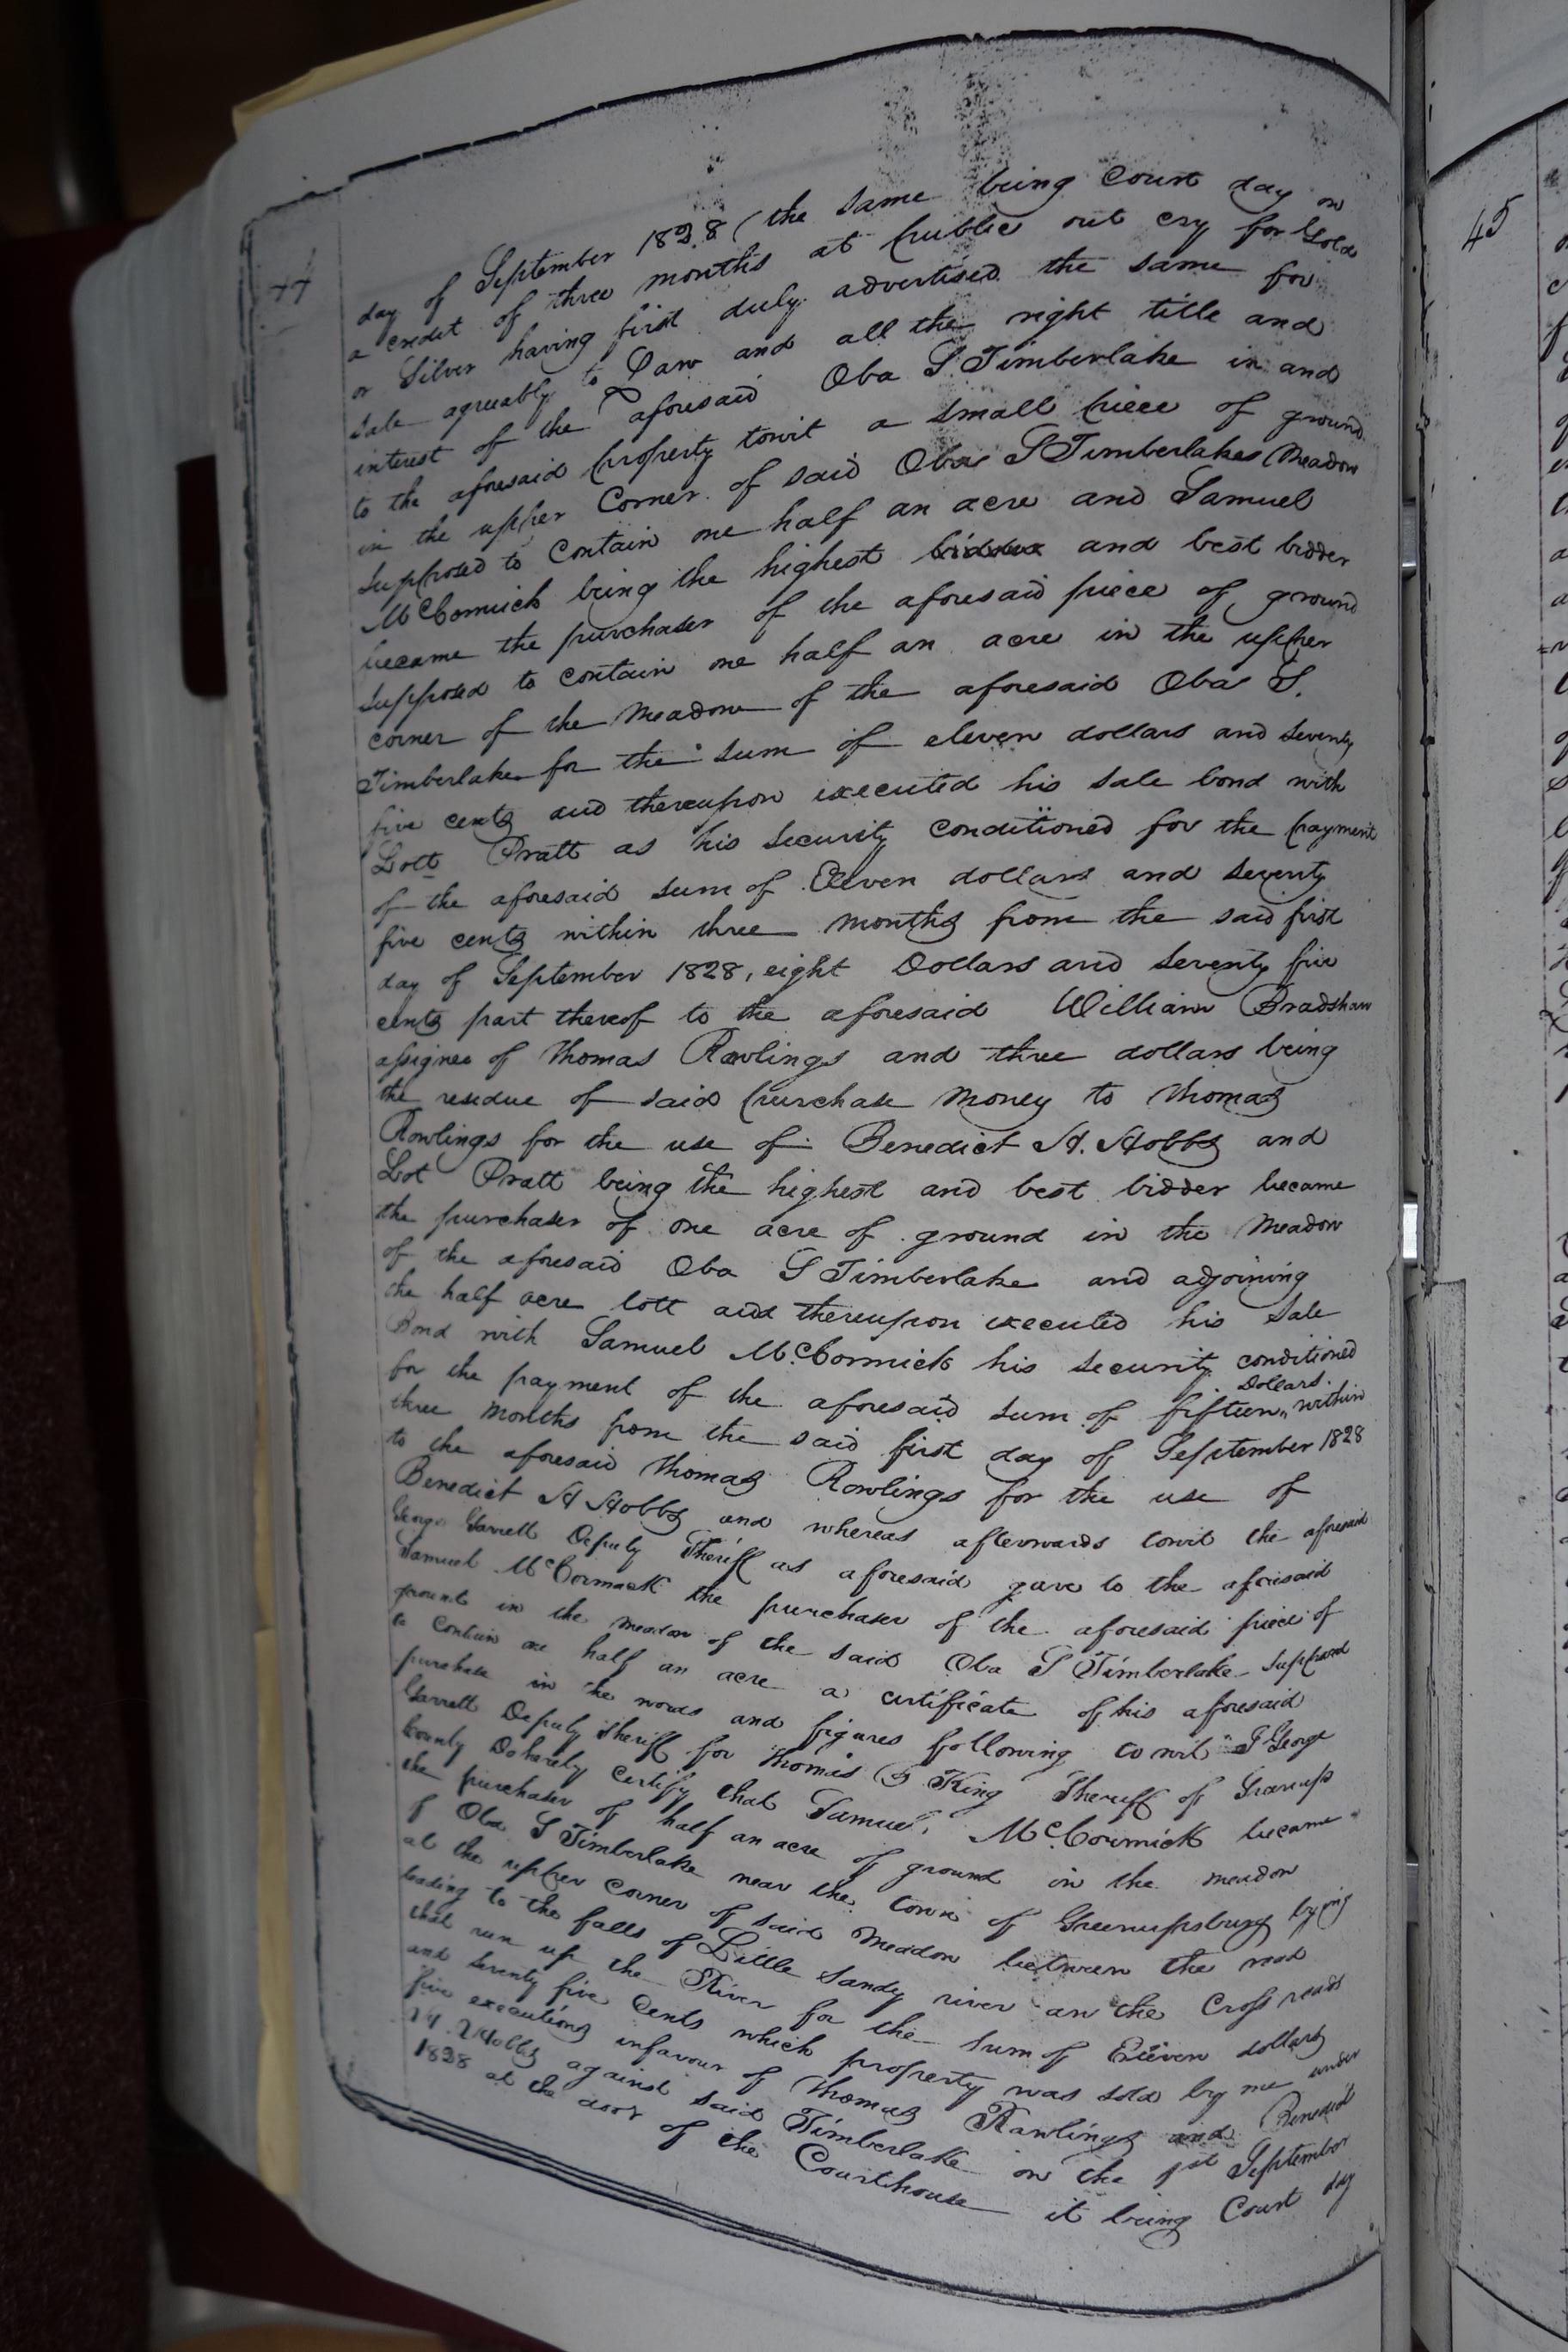 44
day of September 1828 (the same being Court day on
a credit of three months at public out cry for Gold
or Silver having first duly advertised the same for
sale agreeably to Law and all the right title and
interest of the aforesaid Oba S Timberlake in and
to the aforesaid property towit a small piece of ground
in the upper Corner of said Oba S Timberlakes Meadow
supposed to Contain one half an acre and Samuel
McCormick being the highest bidder and best bidder
became the purchaser of the aforesaid piece of ground
supposed to contain one half an acre in the upper
corner of the Meadow of the aforesaid Oba S.
Timberlake for the sum of eleven dollars and seventy
five cents and thereupon executed his sale bond with
Lott Pratt as his security conditioned for the payment
of the aforesaid sum of Eleven dollars and seventy
five cents within three months from the said first
day of September 1828, eight Dollars and seventy five
cents part thereof to the aforesaid William Bradshaw
assignee of Thomas Rawlings and three dollars being
the residue of said purchase money to Thomas
Rowlings for the use of Benedict H. Hobbs and
Lot Pratt being the highest and best bidder became
the purchaser of one acre of ground in the Meadow
of the aforesaid Oba S Timberlake and adjoining
the half acre lott and thereupon executed his Sale
Bond with Samuel McCormick his security conditioned
for the payment of the aforesaid sum of fifteen Dollars within
three months from the said first day of September 1828
to the aforesaid Thomas Rowlings for the use of
Benedict H Hobbs and whereas afterwards towit the aforesaid
George Garrett Deputy Sheriff as aforesaid gave to the aforesaid
Samuel McCormack the purchaser of the aforesaid piece of
ground in the Meadow of the said Oba S Timberlake supposed
to Contain one half an acre a certificate of his aforesaid
purchase in the words and figures following towit "I George
Garrett Deputy Sheriff for Thomas B King Sheriff of Greenup
County Do hereby Certify that Samuel McCormick became
the purchaser of half an acre of ground in the meadow
of Oba S Timberlake near the town of Greenupsburg lying
at the upper corner of said Meadow between the road
leading to the falls of Little Sandy river an the Cross roads
that run up the River for the sum of Eleven dollars
and seventy five Cents which property was sold by me under
five executions infavour of Thomas Rawlings and Benedict
H. Hobbs against said Timberlake on the 1st September
1828 at the door of the Courthouse it being Court day
45